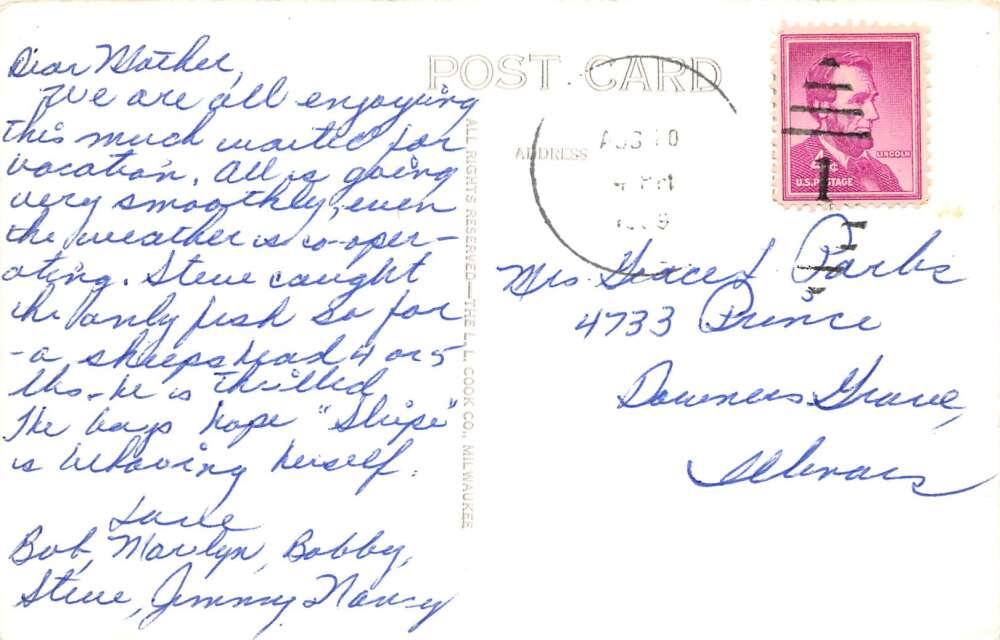 Dear Mother,
We are all enjoying
this much waited for
vacation. All is going
very smoothly, even
the weather is co-oper-
ating. Steve caught
the only fish so far
- a sheepshead 4 or 5
lbs. he is thrilled
The boys hope "Stripe"
is behaving herself.
Love
Bob, Marilyn, Bobby,
Steve, Jimmy Nancy
ALL RIGHTS RESERVED—THE L. L. COOK CO., MILWAUKEE
POST CARD
ADDRESS
AUG 10
4 PM
LINCOLN
U.S. POSTAGE
1
Mrs. Grace L Parks
4733 Prince
Downers Grove,
Illinois